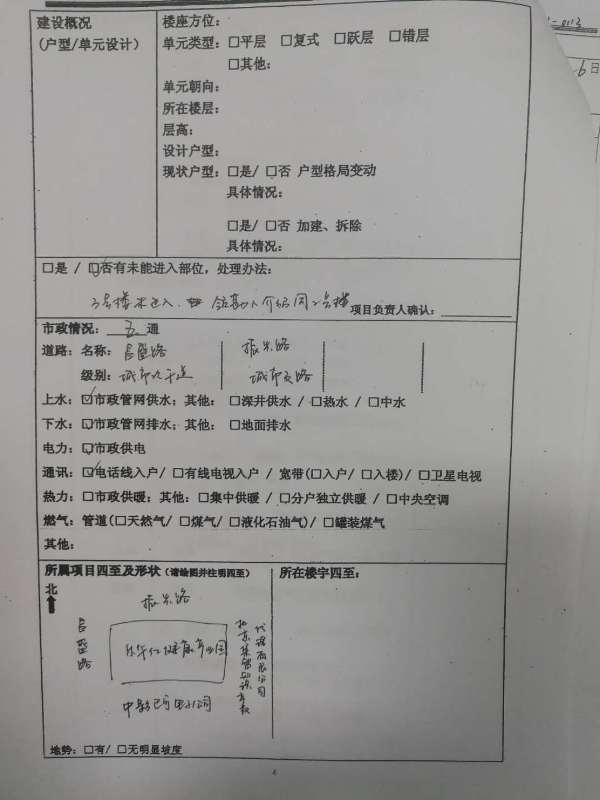 建设概况
(户型/单元设计)
楼座方位：
单元类型：□平层 □复式 □跃层 □错层
□其他：
单元朝向：
所在楼层：
层高：
设计户型：
现状户型：□是/ □否 户型格局变动
具体情况：
□是/ □否 加建、拆除
具体情况：
□是 / ☑否有未能进入部位，处理办法：
3号楼未进入
项目负责人确认：
市政情况： 五 通
道路：名称：昌盛路 振兴路
级别：城市次干道 城市支路
上水：☑市政管网供水；其他： □深井供水 / □热水 / □中水
下水：☑市政管网排水；其他： □地面排水
电力：☑市政供电
通讯：☑电话线入户/ □有线电视入户 / 宽带(□入户/ □入楼)/ □卫星电视
热力：□市政供暖；其他：□集中供暖 / □分户独立供暖 / □中央空调
燃气：管道(□天然气/ □煤气/ □液化石油气)/ □罐装煤气
其他：
所属项目四至及形状（请绘图并注明四至）
所在楼宇四至：
北
振兴路
昌盛路
地势：□有/ □无明显坡度